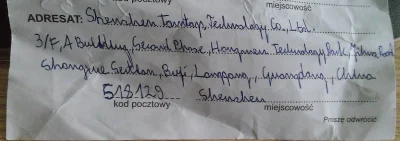 miejscowość
ADRESAT: Shenzhen Technology Co., Ltd.
3/F, A Building, Second Phase, Technology Park,
Shangxue Section, Buji, Longgang, Guangdong, China
518129 Shenzhen
kod pocztowy miejscowość
Proszę odwrócić